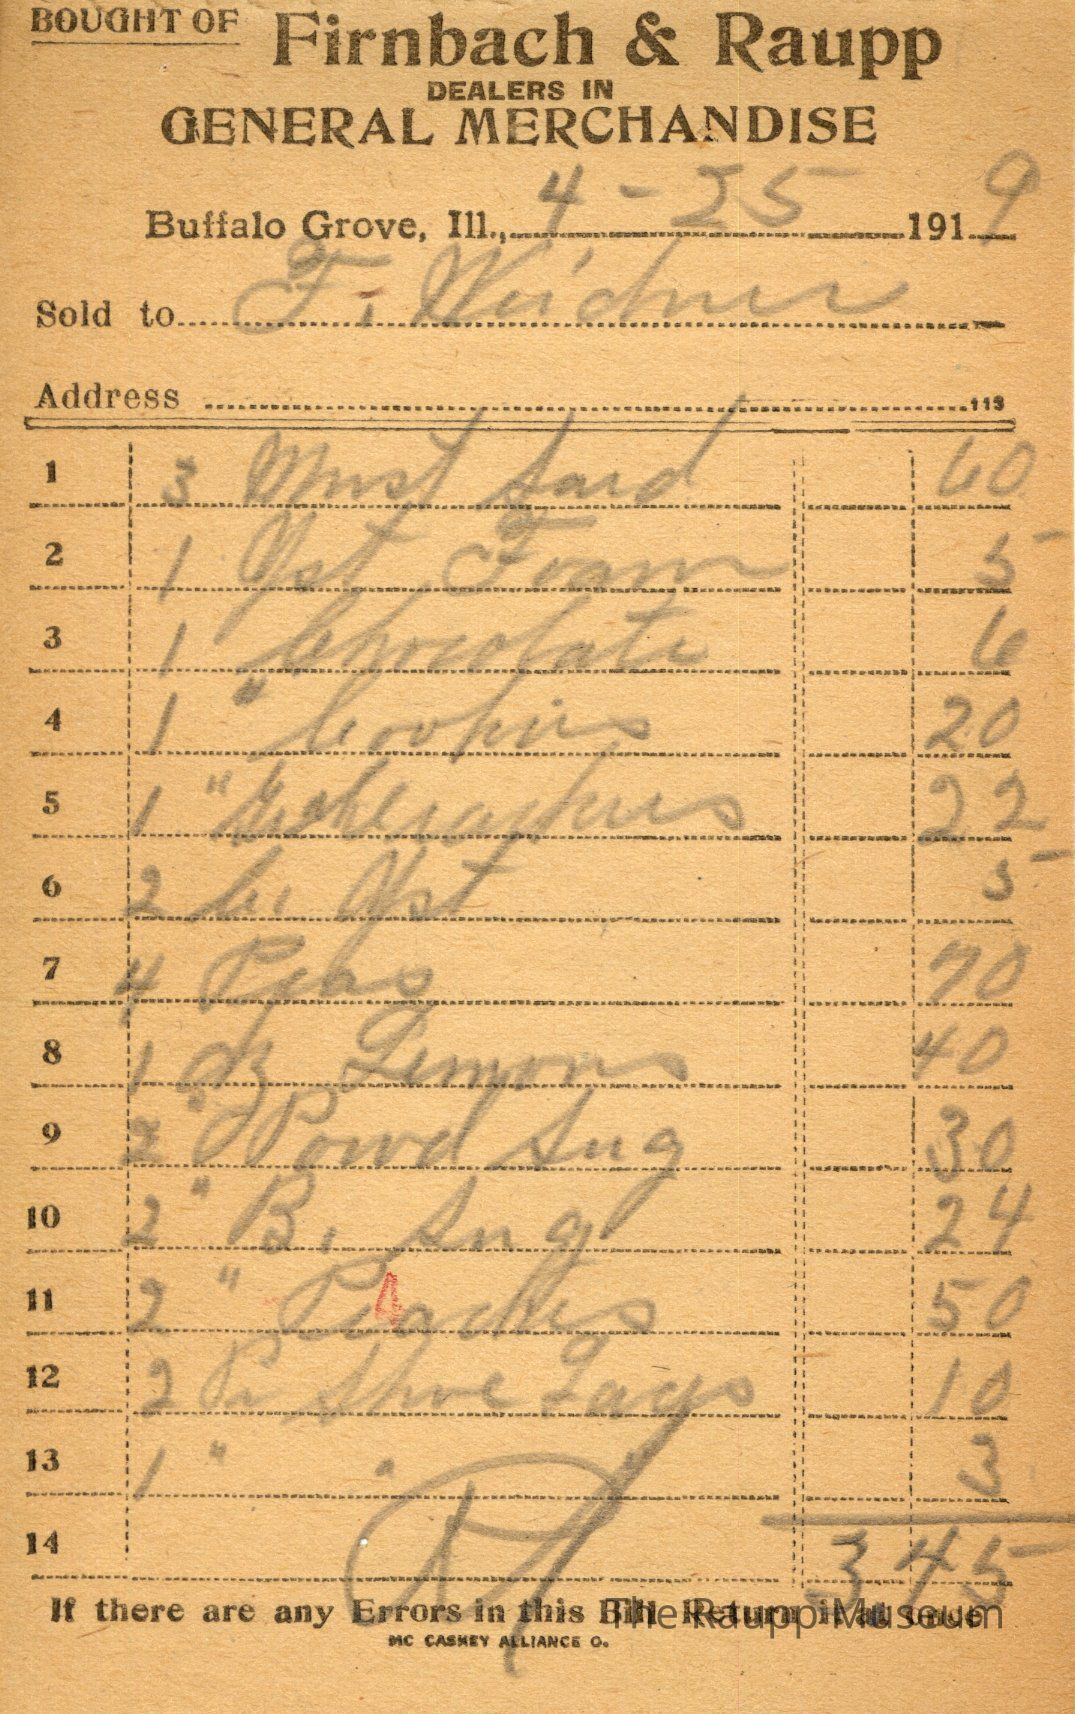 BOUGHT OF Firnbach & Raupp
DEALERS IN
GENERAL MERCHANDISE
Buffalo Grove, Ill., 4-25 1919
Sold to F. Weidner
Address 113
1 3 Must Sard 60
2 1 Yst Foam 5
3 1 Chocolate 6
4 1 " Cookies 20
5 1 " 22
6 2 C. Yst 5
7 4 Peas 70
8 1 dz Lemons 40
9 2 " Powd Sug 30
10 2 " B. Sug 24
11 2 " Peaches 50
12 2 Pr Shoe Lays 10
13 1 " " " 3
14 345
If there are any Errors in this Bill Return it at once
The Raupp Museum
MC CASKEY ALLIANCE O.